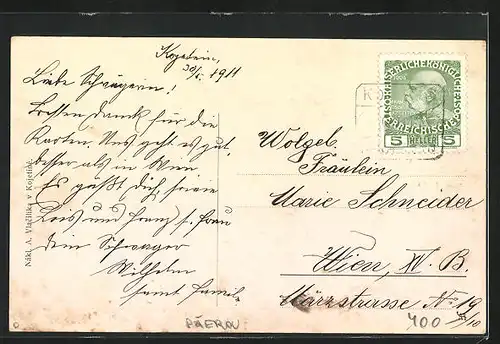 Kojetein,
30/5. 1911
Liebe Schwägerin!
Besten Dank für die
Karten. Uns geht es gut,
besser als in Wien
Es grüßt Dich, sowie
und Franz s. Frau
Dein Schwager
Wilhelm
samt Famil.
Nákl. A. Vlažitilík v Kojetíně.
1908
KAISERLICHE KÖNIGLICHE
ÖSTERREICHISCHE
5 HELLER 5
Wolgeb.
Fräulein
Marie Schneider
Wien, XV. B.
Märzstrasse No 19
400